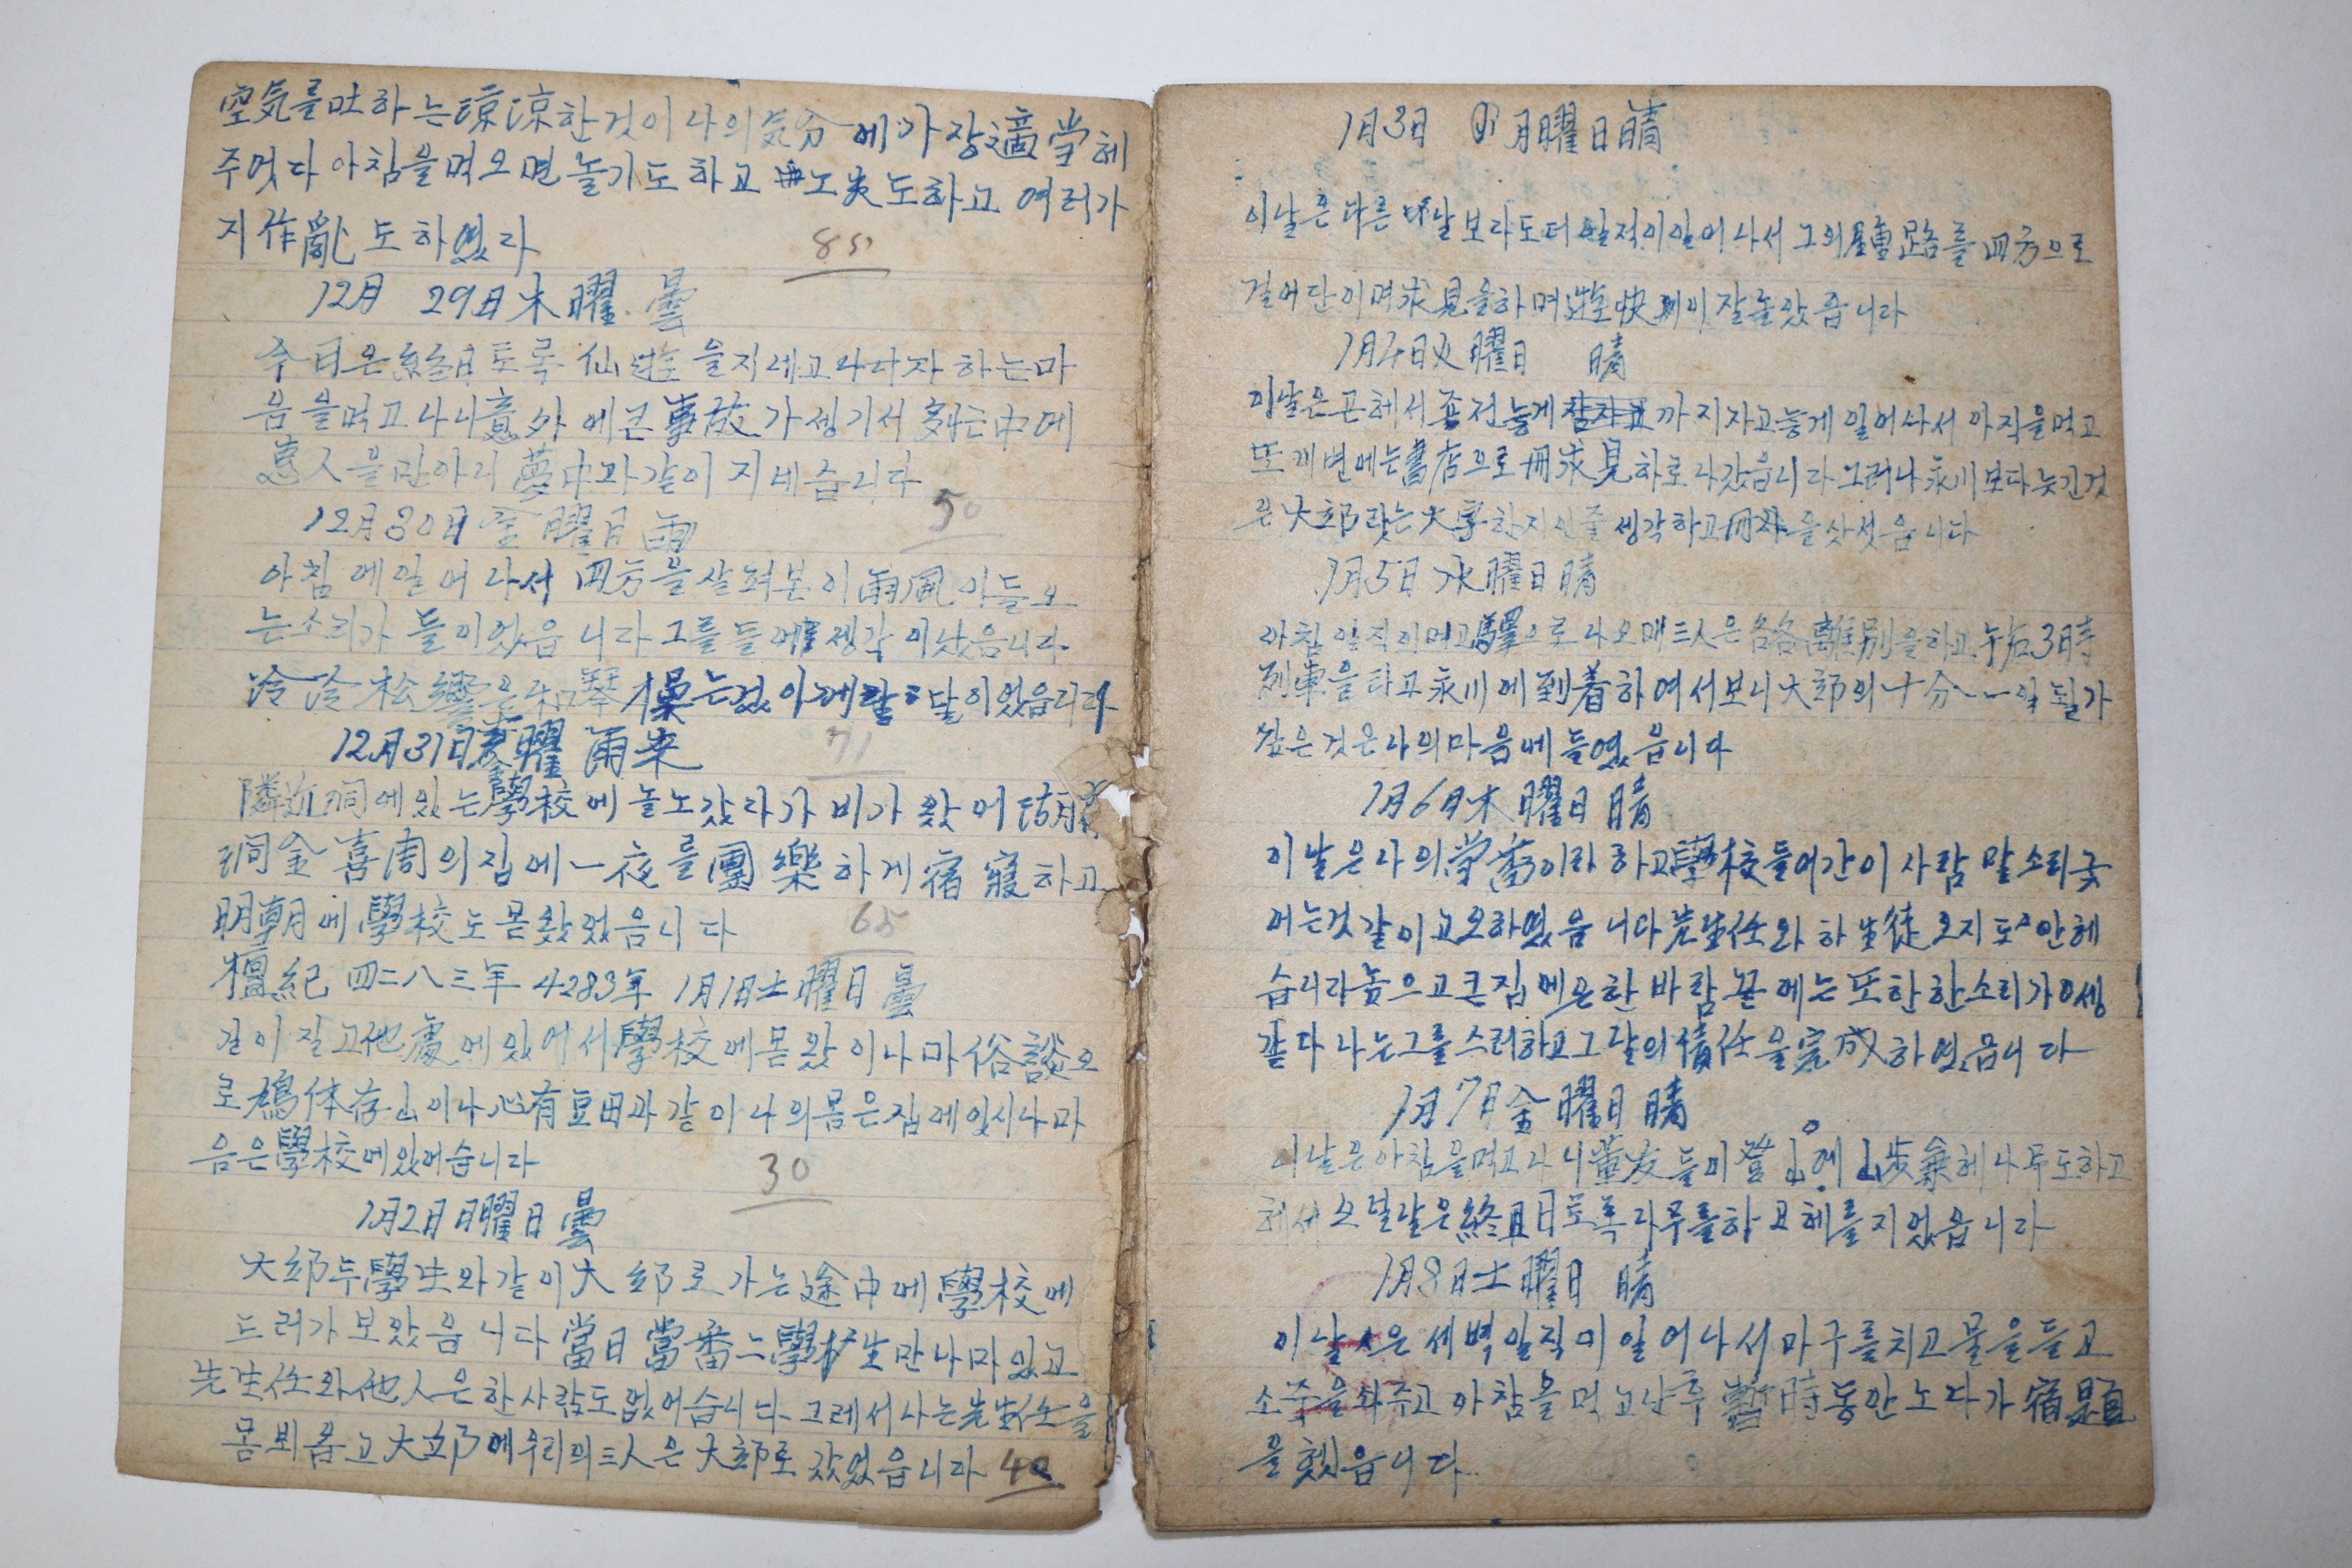 空気를 吐하는 涼한것이 나의 気分에 가장 適當헤
주멋다 아침을 먹으면 놀기도 하고 도하고 여러가
지 作亂도 하였다
85
12月 29日 木曜 曇
今日은 終日토록 仙遊을 지내고 라다자 하는 마
음을 먹고 나니 意外에 큰 事故가 셍기서 中에
人을 만아러 夢中과 같이 지네습니다
50
12月 30日 金曜日 雨
아침에 일어나서 四方을 살펴본이 雨風이 들오
는 소리가 들이었읍니다 그를 들에 셍각이 났읍니다
冷冷松響은 琴 는 이었읍니다
71
12月 31日 曜 雨来
隣近洞에 있는 學校에 놀노 갔다가 비가 왔어
洞 金喜周의 집에 一夜를 團樂하게 宿寢하고
明朝에 學校도 몬 왔었읍니다
65
檀紀 四二八三年 4283年 1月1日 土曜日 曇
길이 질고 他處에 있어서 學校에 몬 왔이나마 俗談으
로 体存山이나 心有豆田과 같이 나의 몸은 집에 잇시나 마
음은 學校에 있어습니다
30
1月2日 日曜日 曇
大邱 두 學生와 같이 大邱로 가는 途中에 學校에
드러가 보았읍니다 當日 當番 二 學校生 만 나마 있고
先生任와 他人은 한 사람도 없어습니다 그레서 나는 先生任을
몸 뵈옵고 大邱에 우리의 三人은 大邱로 갔었읍니다
40
1月3日 月曜日 晴
이날은 다른 날보다도 더 일적이 일어나서 그의 路를 四方으로
걸어단이며 求見을 하며 遊快이 잘 놀았읍니다
1月4日 火曜日 晴
이날은 곤헤서 늦게 까지 자고 늦게 일어나서 아직을 먹고
또 개변에는 書店으로 冊求見하로 나갔읍니다 그러나 永川보다 늣긴것
은 大邱랏는 大字 한지인줄 셍각하고 冊 을 삿섯읍니다
1月5日 水曜日 晴
아침 일직이 먹고 驛으로 나오매 三人은 各各 離別을 하고 午后3時
列車을 타고 永川에 到着하여서 보니 大邱의 十分一 될가
싶은것은 나의 마음에 들였읍니다
1月6日 木曜日 晴
이날은 나의 當番이라 하고 學校 들어간이 사람 말소리 긎
어는것 같이 고요하였읍니다 先生任와 하 生徒 오지도 안헤
습니다 높으고 큰집에 은한 바람끝에는 또한 한소리가 셍
같다 나는 그를 스러하고 그날의 責任을 完成하였읍니다
1月7日 金曜日 晴
이날은 아침을 먹고나니 輩友들이 登山에 山步兼헤 나무도 하고
헤서 오널날은 終日토록 나무를 하고 헤를 지었읍니다
1月8日 土曜日 晴
이날은 세벽 일직이 일어나서 마구를 치고 물을 들고
소죽을 와주고 아참을 먹고난 후 暫時 동안 노다가 宿題
을 했읍니다